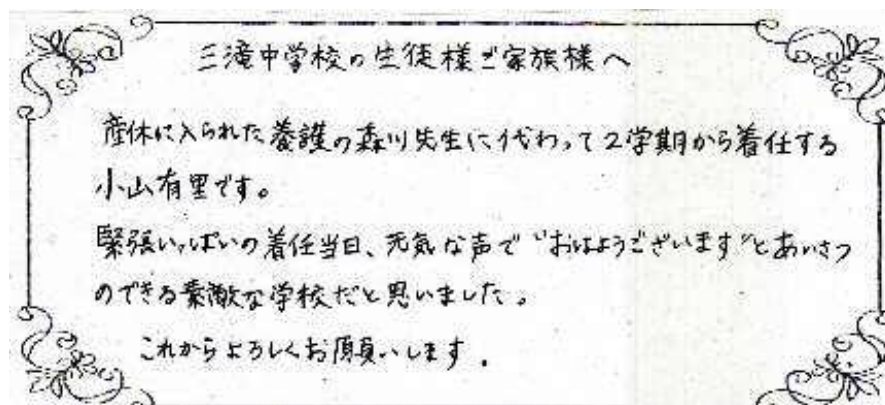 三滝中学校の生徒様ご家族様へ
産休に入られた養護の森川先生に代わって2学期から着任する
小山有里です。
緊張いっぱいの着任当日、元気な声で“おはようございます”とあいさつ
のできる素敵な学校だと思いました。
これからよろしくお願いします.